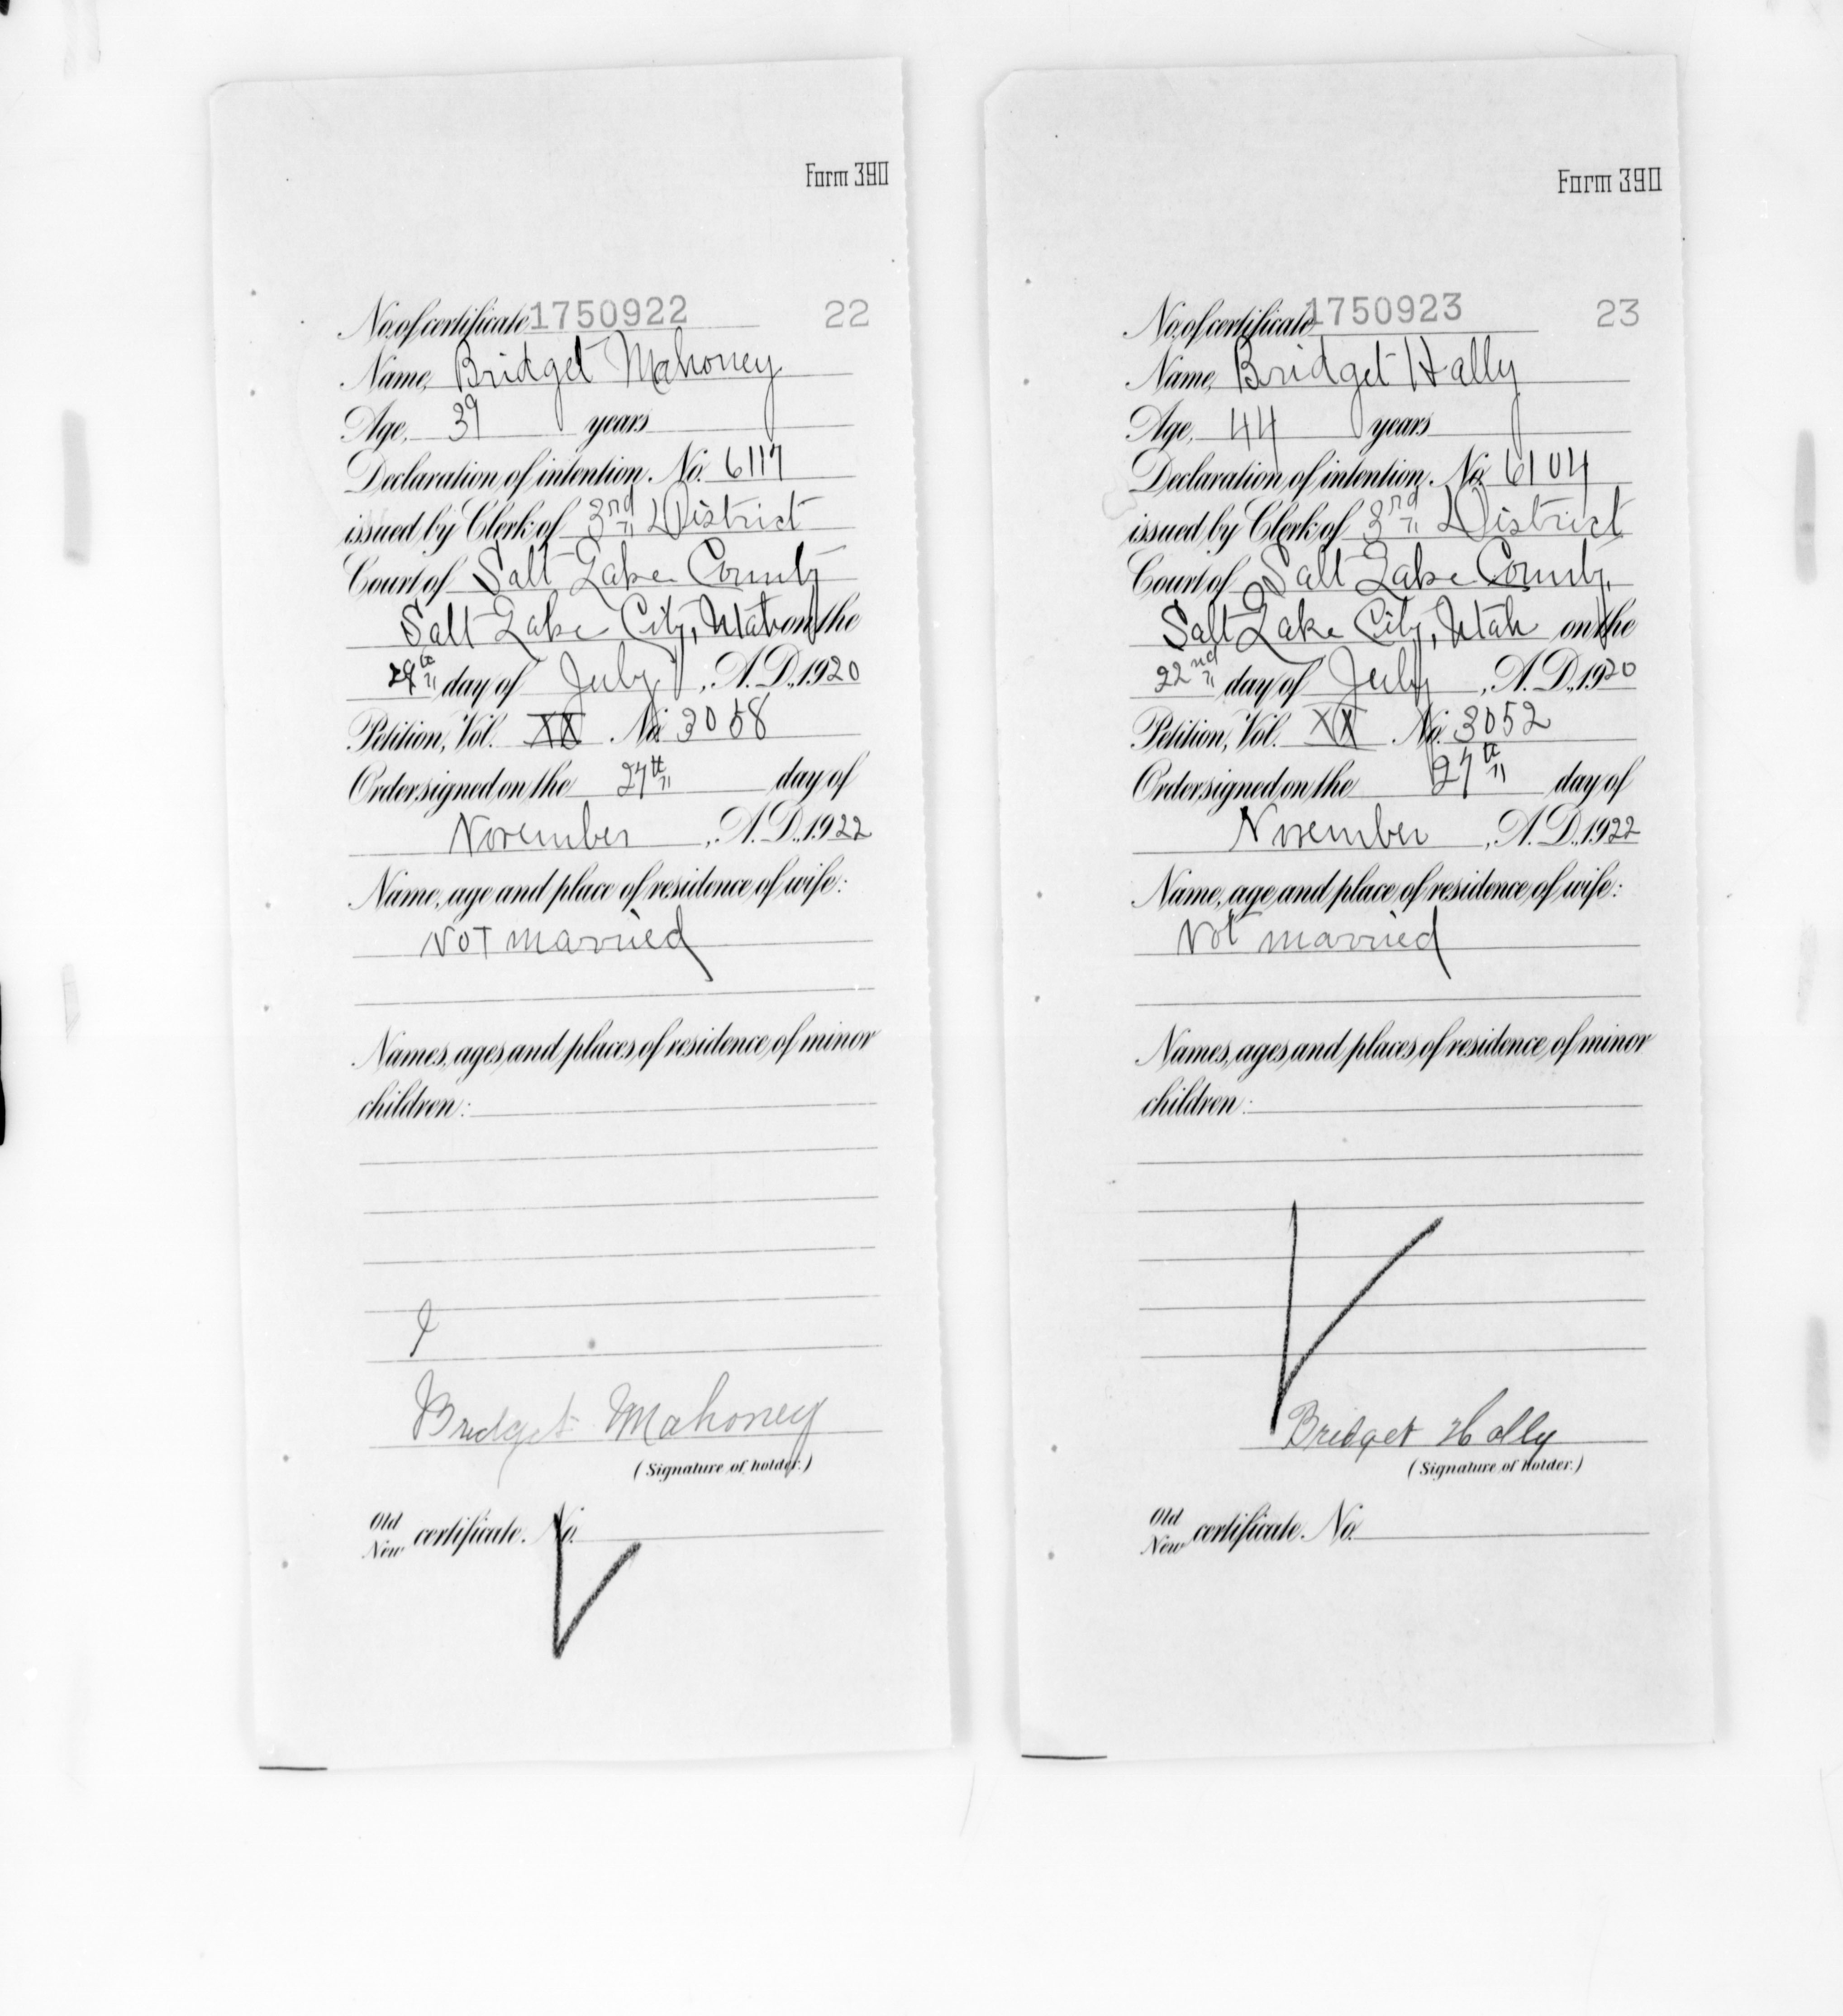 Form 390
No. of certificate 1750922 22
Name, Bridget Mahoney
Age, 39 years
Declaration of intention. No. 6117
issued by Clerk of 3rd District
Court of Salt Lake County
Salt Lake City, Utah on the
29th day of July, A. D., 1920
Petition, Vol. XX No. 3058
Order signed on the 27th day of
November, A. D., 1922
Name, age and place of residence of wife:
Not married
Names, ages and places of residence of minor
children:
Bridget Mahoney
(Signature of holder.)
Old
New certificate. No.
Form 390
No. of certificate 1750923 23
Name, Bridget Hally
Age, 44 years
Declaration of intention. No. 6104
issued by Clerk of 3rd District
Court of Salt Lake County,
Salt Lake City, Utah on the
22nd day of July, A. D., 1920
Petition, Vol. XX No. 3052
Order signed on the 27th day of
November, A. D., 1922
Name, age and place of residence of wife:
Not married
Names, ages and places of residence of minor
children:
Bridget Hally
(Signature of holder.)
Old
New certificate. No.